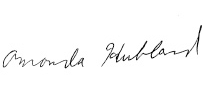 Amanda Hubbard